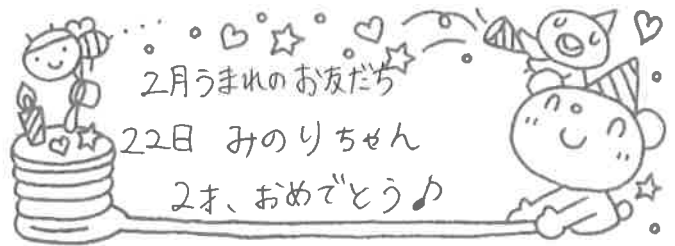 2月うまれのお友だち
22日 みのりちゃん
2才、おめでとう♪